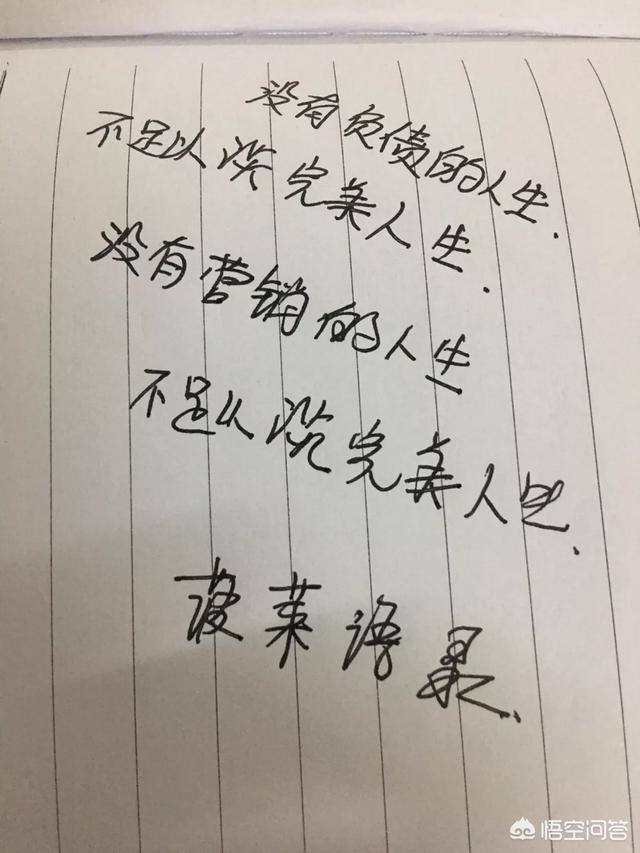 没有负债的人生.
不足以谈完美人生.
没有营销的人生
不足以谈完美人生.
菠菜语录.
悟空问答